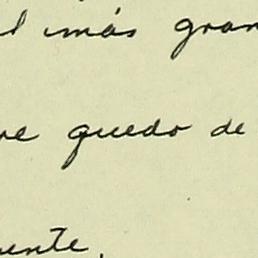 el más gran
me quedo de
mente,